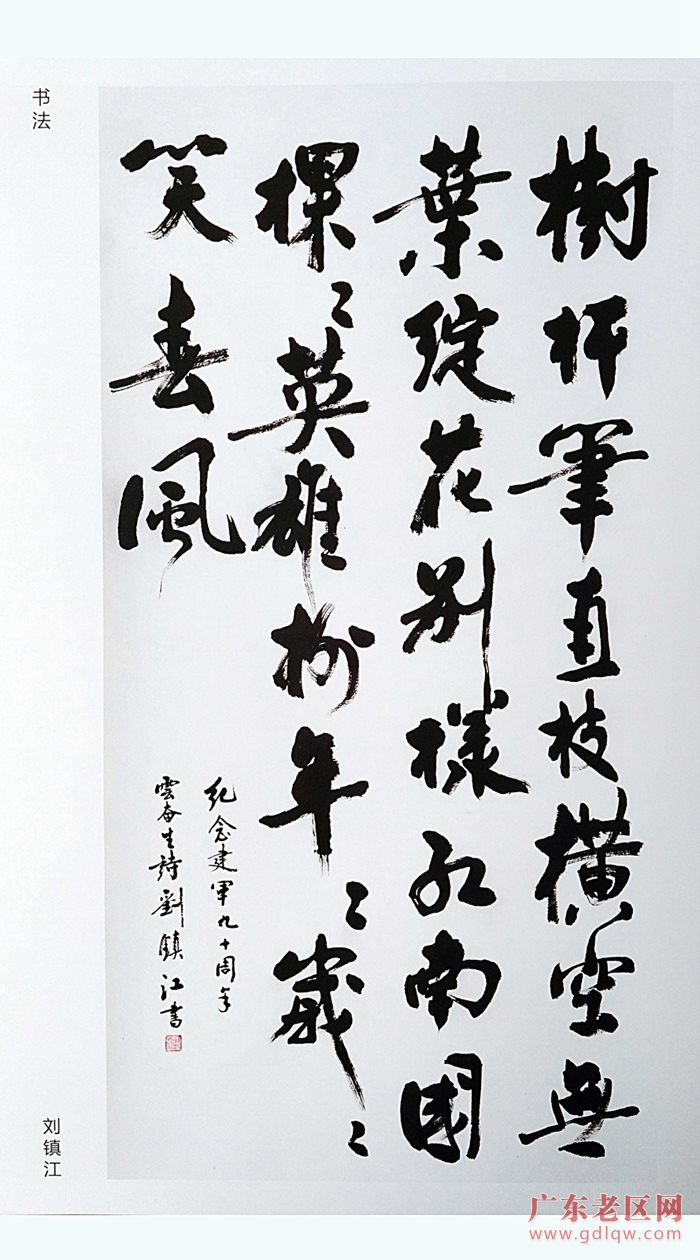 书法
樹杆筆直枝橫空無
葉綻花別樣紅南國
棵〻英雄树年〻歲〻
笑春風
紀念建軍九十周年
雲奋生詩劉鎮江書
刘镇江
广东老区网
www.gdlqw.com